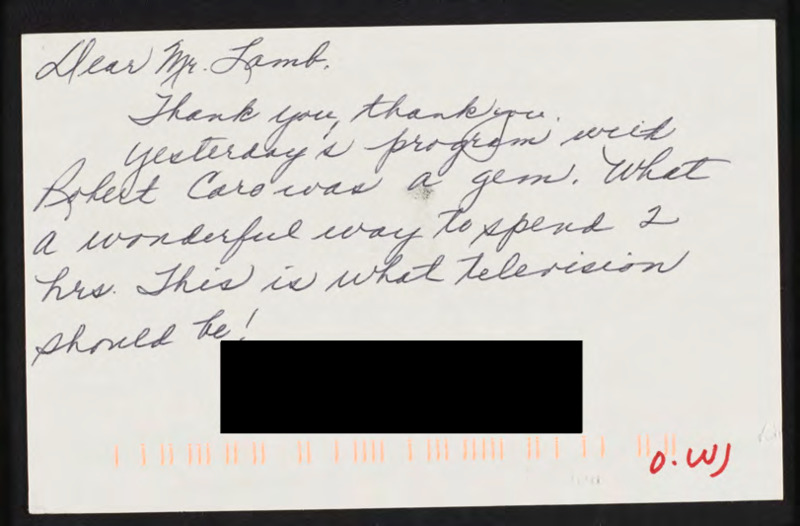 Dear Mr. Lamb.
Thank you, thank you.
Yesterday's program with
Robert Caro was a gem. What
a wonderful way to spend 2
hrs. This is what television
should be!
O.W)